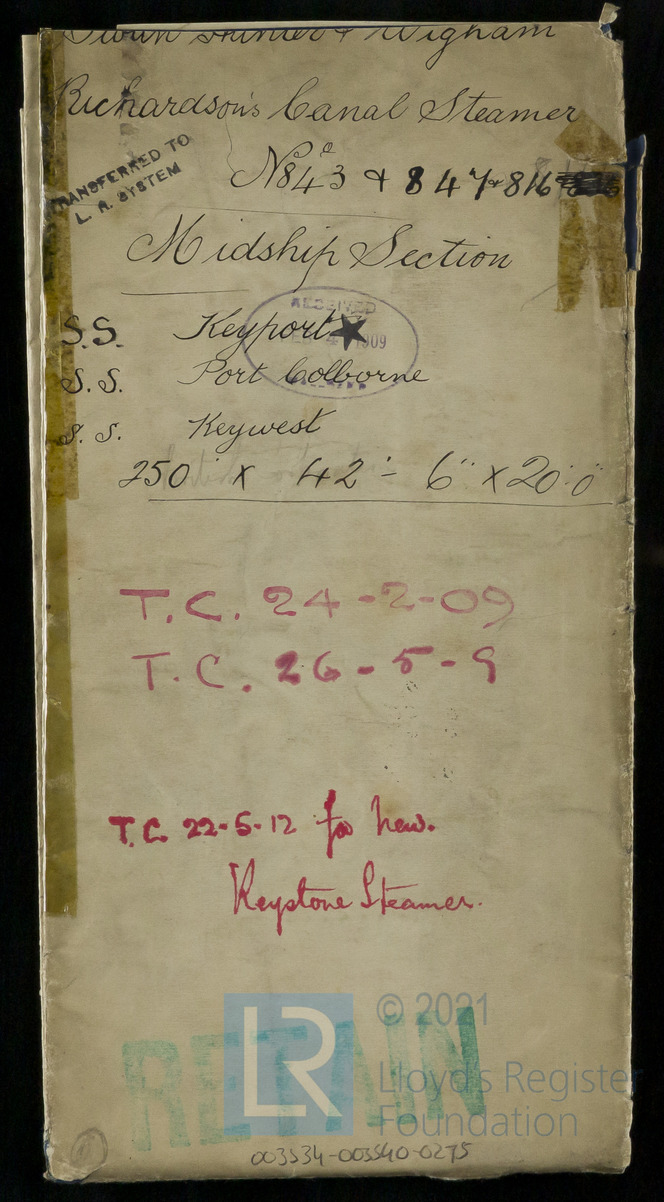 Swan Hunter & Wigham
Richardson's Canal Steamer
TRANSFERRED TO
L. R. SYSTEM
Nos 843 & 847 & 816
Midship Section
RECEIVED
1909
S.S. Keyport
S.S. Port Colborne
S.S. Keywest
250' x 42'- 6" x 20'.0"
T.C. 24-2-09
T.C. 26-5-9
T.C. 22-5-12 for new.
Keystone Steamer.
RETAIN
LR
© 2021
Lloyd's Register
Foundation
003534-003540-0275